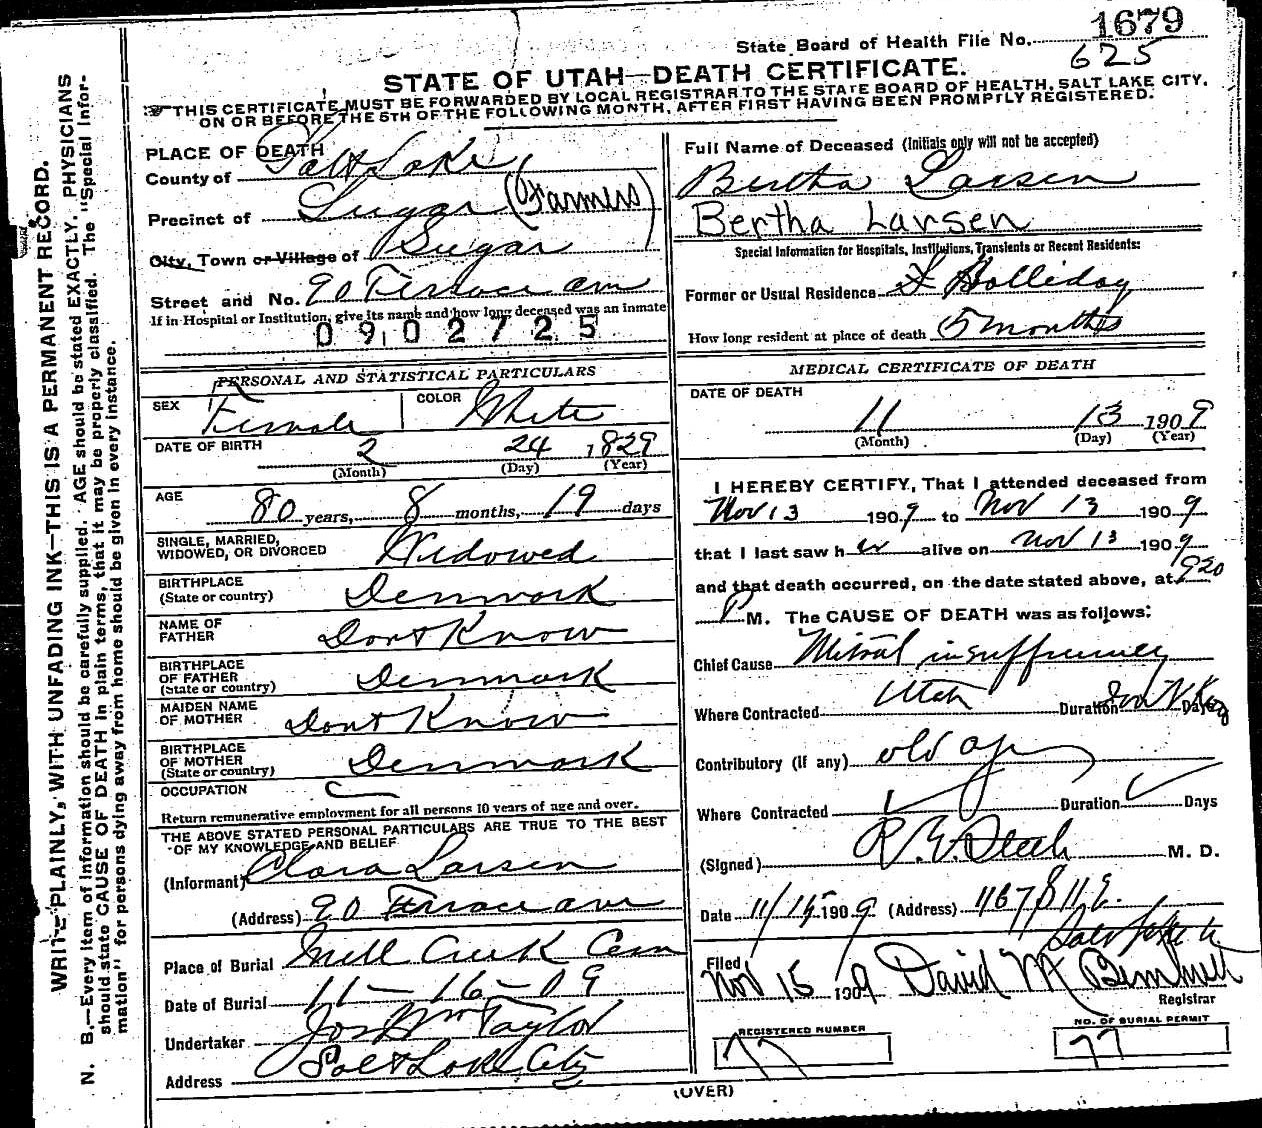 1679
State Board of Health File No.
625
STATE OF UTAH—DEATH CERTIFICATE.
THIS CERTIFICATE MUST BE FORWARDED BY LOCAL REGISTRAR TO THE STATE BOARD OF HEALTH, SALT LAKE CITY,
ON OR BEFORE THE 5TH OF THE FOLLOWING MONTH, AFTER FIRST HAVING BEEN PROMPTLY REGISTERED.
WRITE PLAINLY, WITH UNFADING INK—THIS IS A PERMANENT RECORD.
N. B.—Every item of information should be carefully supplied. AGE should be stated EXACTLY. PHYSICIANS
should state CAUSE OF DEATH in plain terms, that it may be properly classified. The "Special Infor-
mation" for persons dying away from home should be given in every instance.
PLACE OF DEATH
County of Salt Lake
Precinct of Sugar (Farmers)
City, Town or Village of Sugar
Street and No. 90 Terrace ave
If in Hospital or Institution, give its name and how long deceased was an inmate
0902725
PERSONAL AND STATISTICAL PARTICULARS
SEX Female COLOR White
DATE OF BIRTH 2 24 1829
(Month) (Day) (Year)
AGE 80 years, 8 months, 19 days
SINGLE, MARRIED,
WIDOWED, OR DIVORCED Widowed
BIRTHPLACE
(State or country) Denmark
NAME OF
FATHER Dont Know
BIRTHPLACE
OF FATHER
(State or country) Denmark
MAIDEN NAME
OF MOTHER Dont Know
BIRTHPLACE
OF MOTHER
(State or country) Denmark
OCCUPATION
Return remunerative employment for all persons 10 years of age and over.
THE ABOVE STATED PERSONAL PARTICULARS ARE TRUE TO THE BEST
OF MY KNOWLEDGE AND BELIEF
(Informant) Clara Larsen
(Address) 90 Terrace ave
Place of Burial Mill Creek Cem
Date of Burial 11-16-09
Undertaker Jos Wm Taylor
Address Salt Lake City
Full Name of Deceased (Initials only will not be accepted)
Bertha Larsen
Bertha Larsen
Special Information for Hospitals, Institutions, Transients or Recent Residents:
Former or Usual Residence Holliday
How long resident at place of death 5 months
MEDICAL CERTIFICATE OF DEATH
DATE OF DEATH
11 13 1909
(Month) (Day) (Year)
I HEREBY CERTIFY, That I attended deceased from
Nov 13 1909 to Nov 13 1909
that I last saw her alive on Nov 13 1909
and that death occurred, on the date stated above, at 920
P M. The CAUSE OF DEATH was as follows:
Chief Cause Mitral insufficiency
Where Contracted Utah Duration Don't Know Days
Contributory (if any) old age
Where Contracted Duration Days
(Signed) M. D.
Date 11/15 1909 (Address) 1167 E 11 E.
Salt Lake
Filed
Nov 15 1909 David M
Registrar
REGISTERED NUMBER NO. OF BURIAL PERMIT
77 77
(OVER)